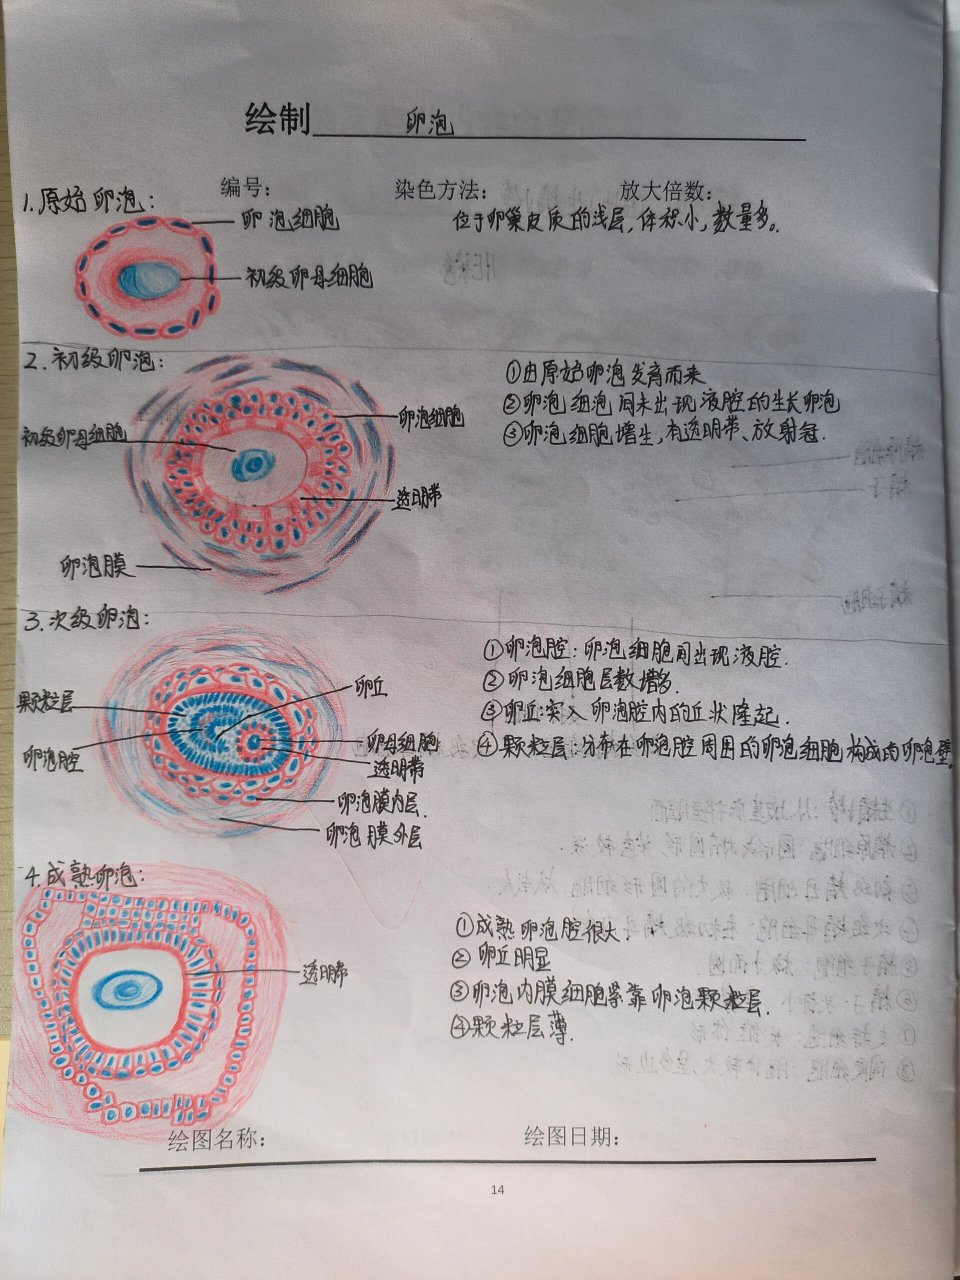 绘制 卵泡
编号: 染色方法: 放大倍数:
1.原始卵泡:
卵泡细胞
位于卵巢皮质的浅层,体积小,数量多。
初级卵母细胞
2.初级卵泡:
①由原始卵泡发育而来
②卵泡细泡间未出现液腔的生长卵泡
③卵泡细胞增生,有透明带、放射冠.
卵泡细胞
初级卵母细胞
透明带
卵泡膜
3.次级卵泡:
①卵泡腔:卵泡细胞间出现液腔.
②卵泡细胞层数增多.
③卵丘:突入卵泡腔内的丘状隆起.
④颗粒层:分布在卵泡腔周围的卵泡细胞构成的卵泡壁。
卵丘
颗粒层
卵泡腔
卵母细胞
透明带
卵泡膜内层
卵泡膜外层
4.成熟卵泡:
①成熟卵泡腔很大.
②卵丘明显
③卵泡内膜细胞紧靠卵泡颗粒层.
④颗粒层薄.
透明带
绘图名称: 绘图日期:
14